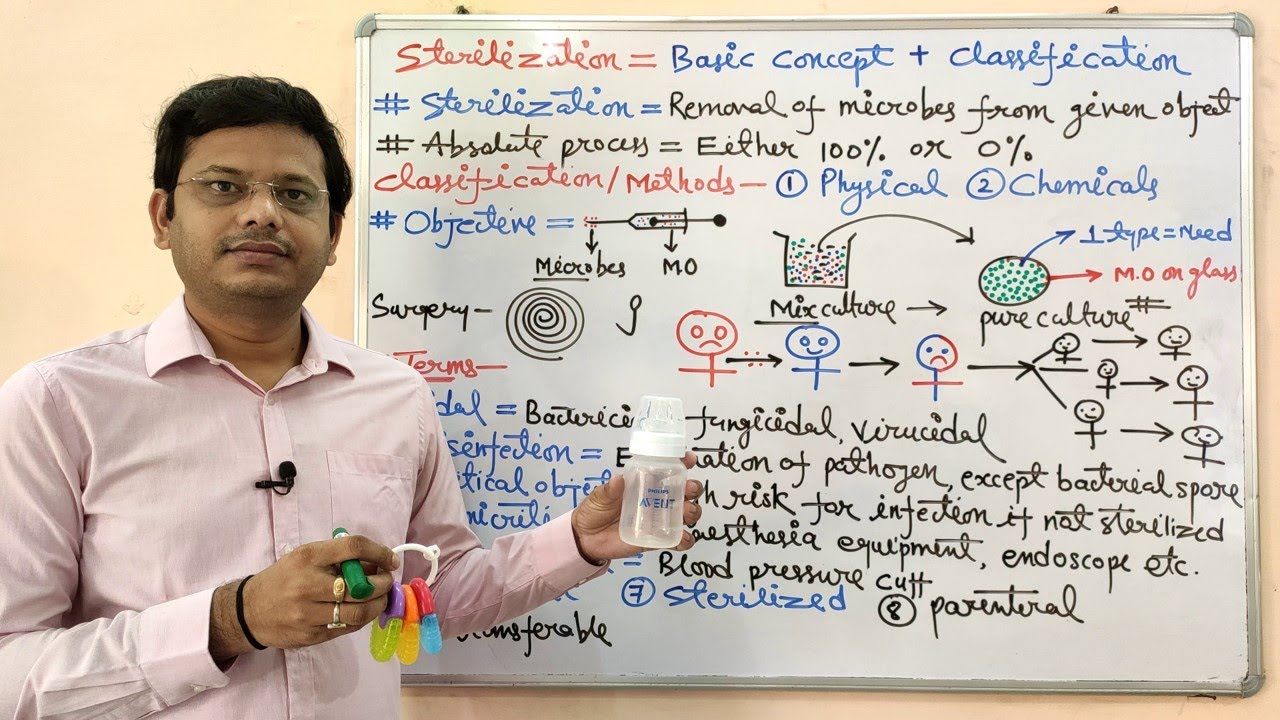 Sterilization = Basic concept + Classification
# Sterilization = Removal of microbes from given object
# Absolute process = Either 100% or 0%
Classification/Methods – ① Physical ② Chemicals
# Objective =
1 type = Need
Microbes M.O
M.O on glass
Surgery –
Mix culture → pure culture #
Terms –
dal = Bacterici fungicidal, virucidal
isinfection = E ation of pathogen, except bacterial spore
itical obje h risk for infection if not sterilized
aesthesia equipment, endoscope etc.
= Blood pressure cuff
⑦ Sterilized ⑧ parenteral
nsferable
PHILIPS
AVENT